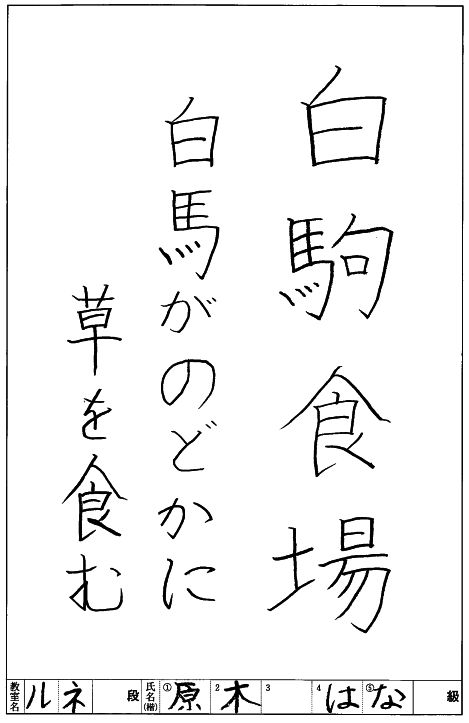 白駒食場
白馬がのどかに
草を食む
教室名 ルネ 段 氏名(楷) ① 原 2 木 3 4 は ⑤ な 級